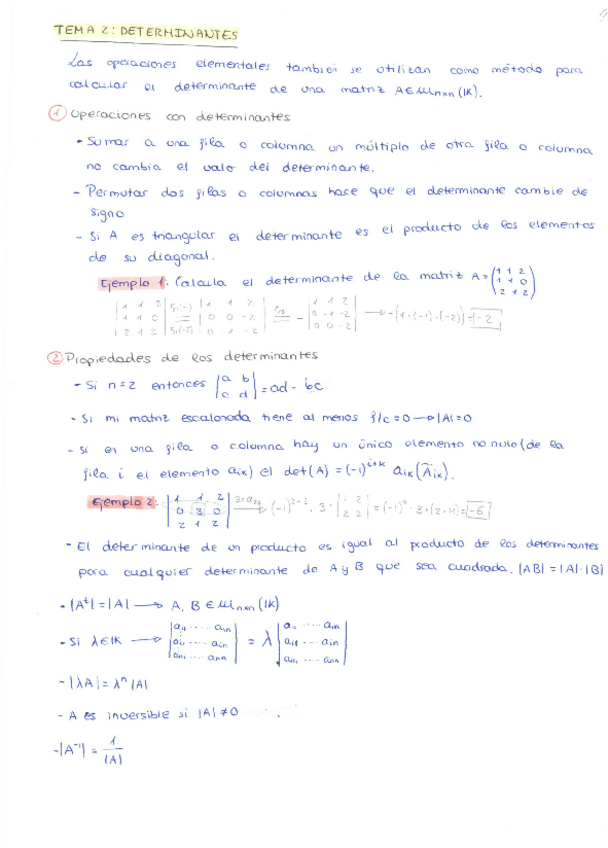 TEMA 2: DETERMINANTES
Las operaciones elementales también se utilizan como método para
calcular el determinante de una matriz A∈Mnxn(IK).
① Operaciones con determinantes
- Sumar a una fila o columna un múltiplo de otra fila o columna
no cambia el valor del determinante.
- Permutar dos filas o columnas hace que el determinante cambie de
signo
- Si A es triangular el determinante es el producto de los elementos
de su diagonal.
Ejemplo 1: Calcula el determinante de la matriz A=(1 1 2
1 1 0
2 1 2)
|1 1 2| |1 1 2| |1 1 2|
|1 1 0| = |0 0 -2| = - |0 -1 -2| → -(1·(-1)·(-2))=-2
|2 1 2| |0 -1 -2| |0 0 -2|
② Propiedades de los determinantes
- Si n=2 entonces |a b
c d| = ad - bc
- Si mi matriz escalonada tiene al menos f/c=0 → |A|=0
- Si en una fila o columna hay un único elemento no nulo (de la
fila i el elemento aik) el det(A) = (-1)^i+k aik (Ãik).
Ejemplo 2: |1 1 2|
|0 3 0| 3=a22 → (-1)^2+2 · 3 · |1 2
2 2| = (-1)^4 · 3 · (2-4)=-6
|2 1 2|
- El determinante de un producto es igual al producto de los determinantes
para cualquier determinante de A y B que sea cuadrada. |AB|=|A|·|B|
- |A^t| = |A| → A, B ∈ Mnxn(IK)
- Si λ∈IK → |a11 ..... a1n| = λ |a11 ..... a1n|
|ai1 ..... ain| |ai1 ..... ain|
|an1 ..... ann| |an1 ..... ann|
- |λA| = λ^n |A|
- A es inversible si |A| ≠ 0
- |A^-1| = 1/|A|